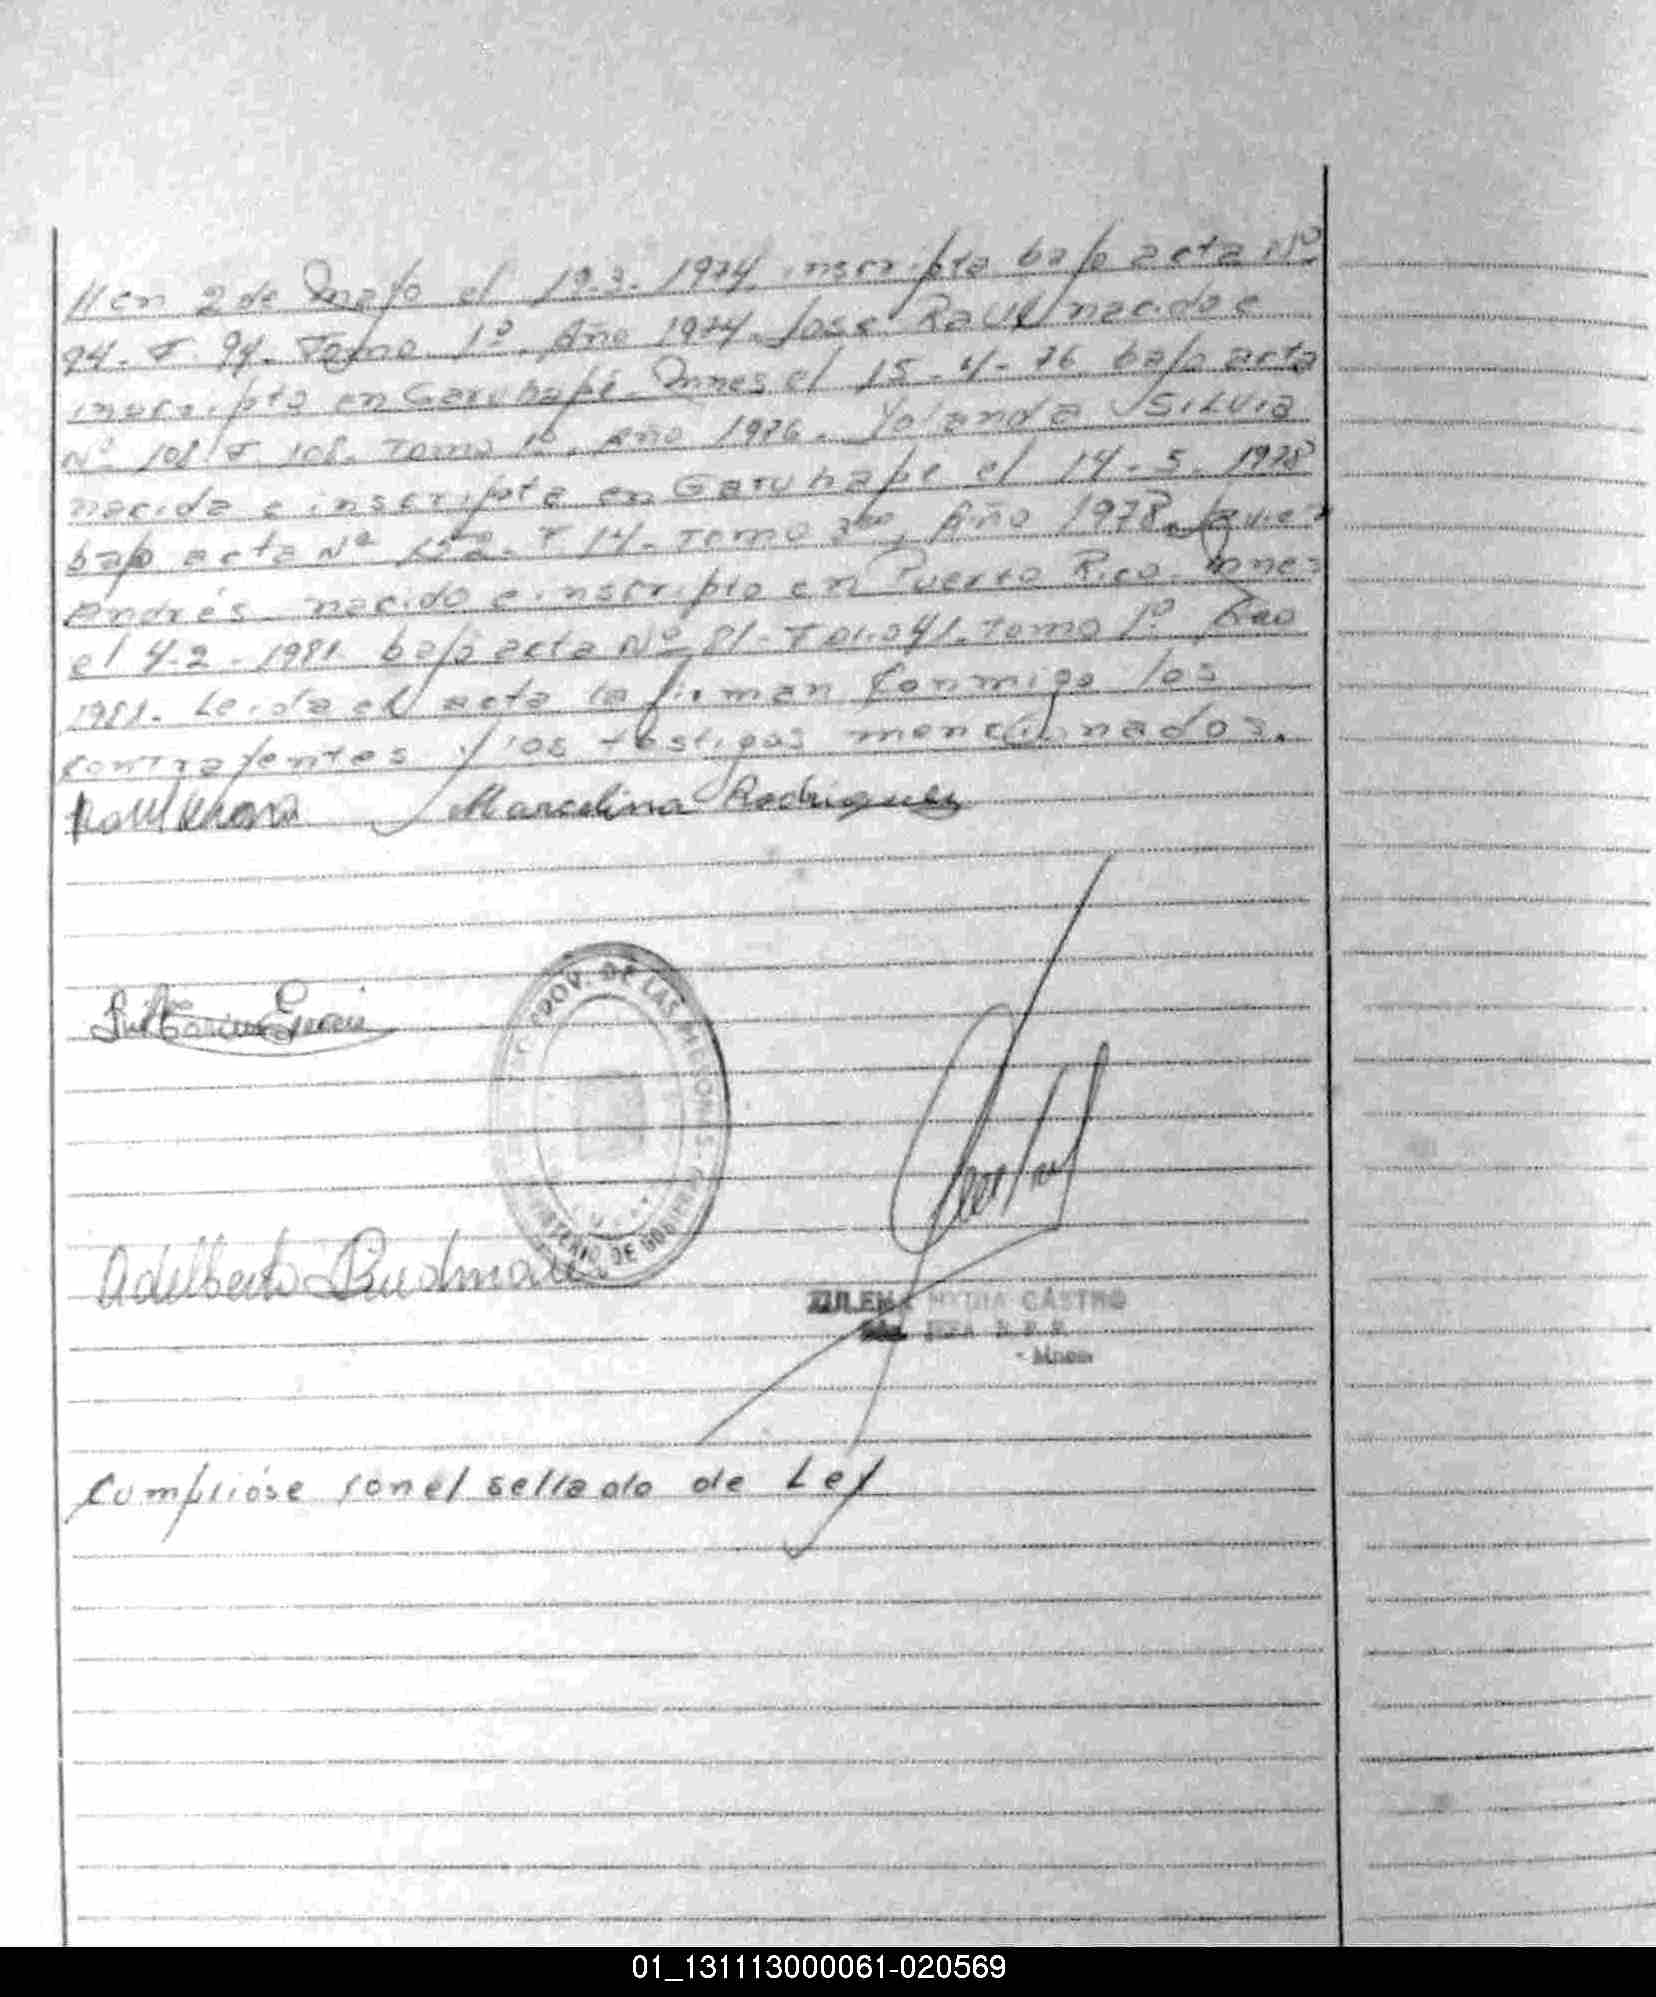 //en 2 de Mayo el 19-3-1974, inscripta bajo acta Nº
94- F. 94- Tomo 1º. Año 1974. José Raúl nacido e
inscripto en Garuhapé- Mnes el 15-4-76 bajo acta
Nº 108 F. 108. Tomo 1º. Año 1976. Yolanda Silvia
nacida e inscripta en Garuhapé el 14-5-1978
bajo acta Nº F 14- Tomo 3ro, Año 1978. Javier
Andrés nacido e inscripto en Puerto Rico- Mnes
el 4-2-1981 bajo acta Nº 81- Folio 41. Tomo 1º Año
1981. Leída el acta la firman conmigo los
contrayentes y los testigos mencionados.
Marcelina Rodriguez
PROV. DE LAS MISIONES
MINISTERIO DE GOBIERNO
Adelberto
ZULEMA CASTRO
JEFA
- Mnes.
Cumplióse con el sellado de Ley
01_131113000061-020569